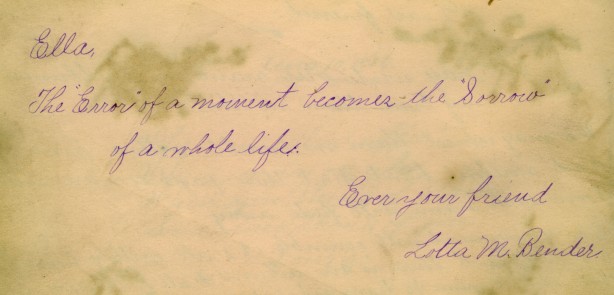 Ella,
The "Error" of a moment becomes the "Sorrow"
of a whole life.
Ever your friend
Lotta M. Bender.